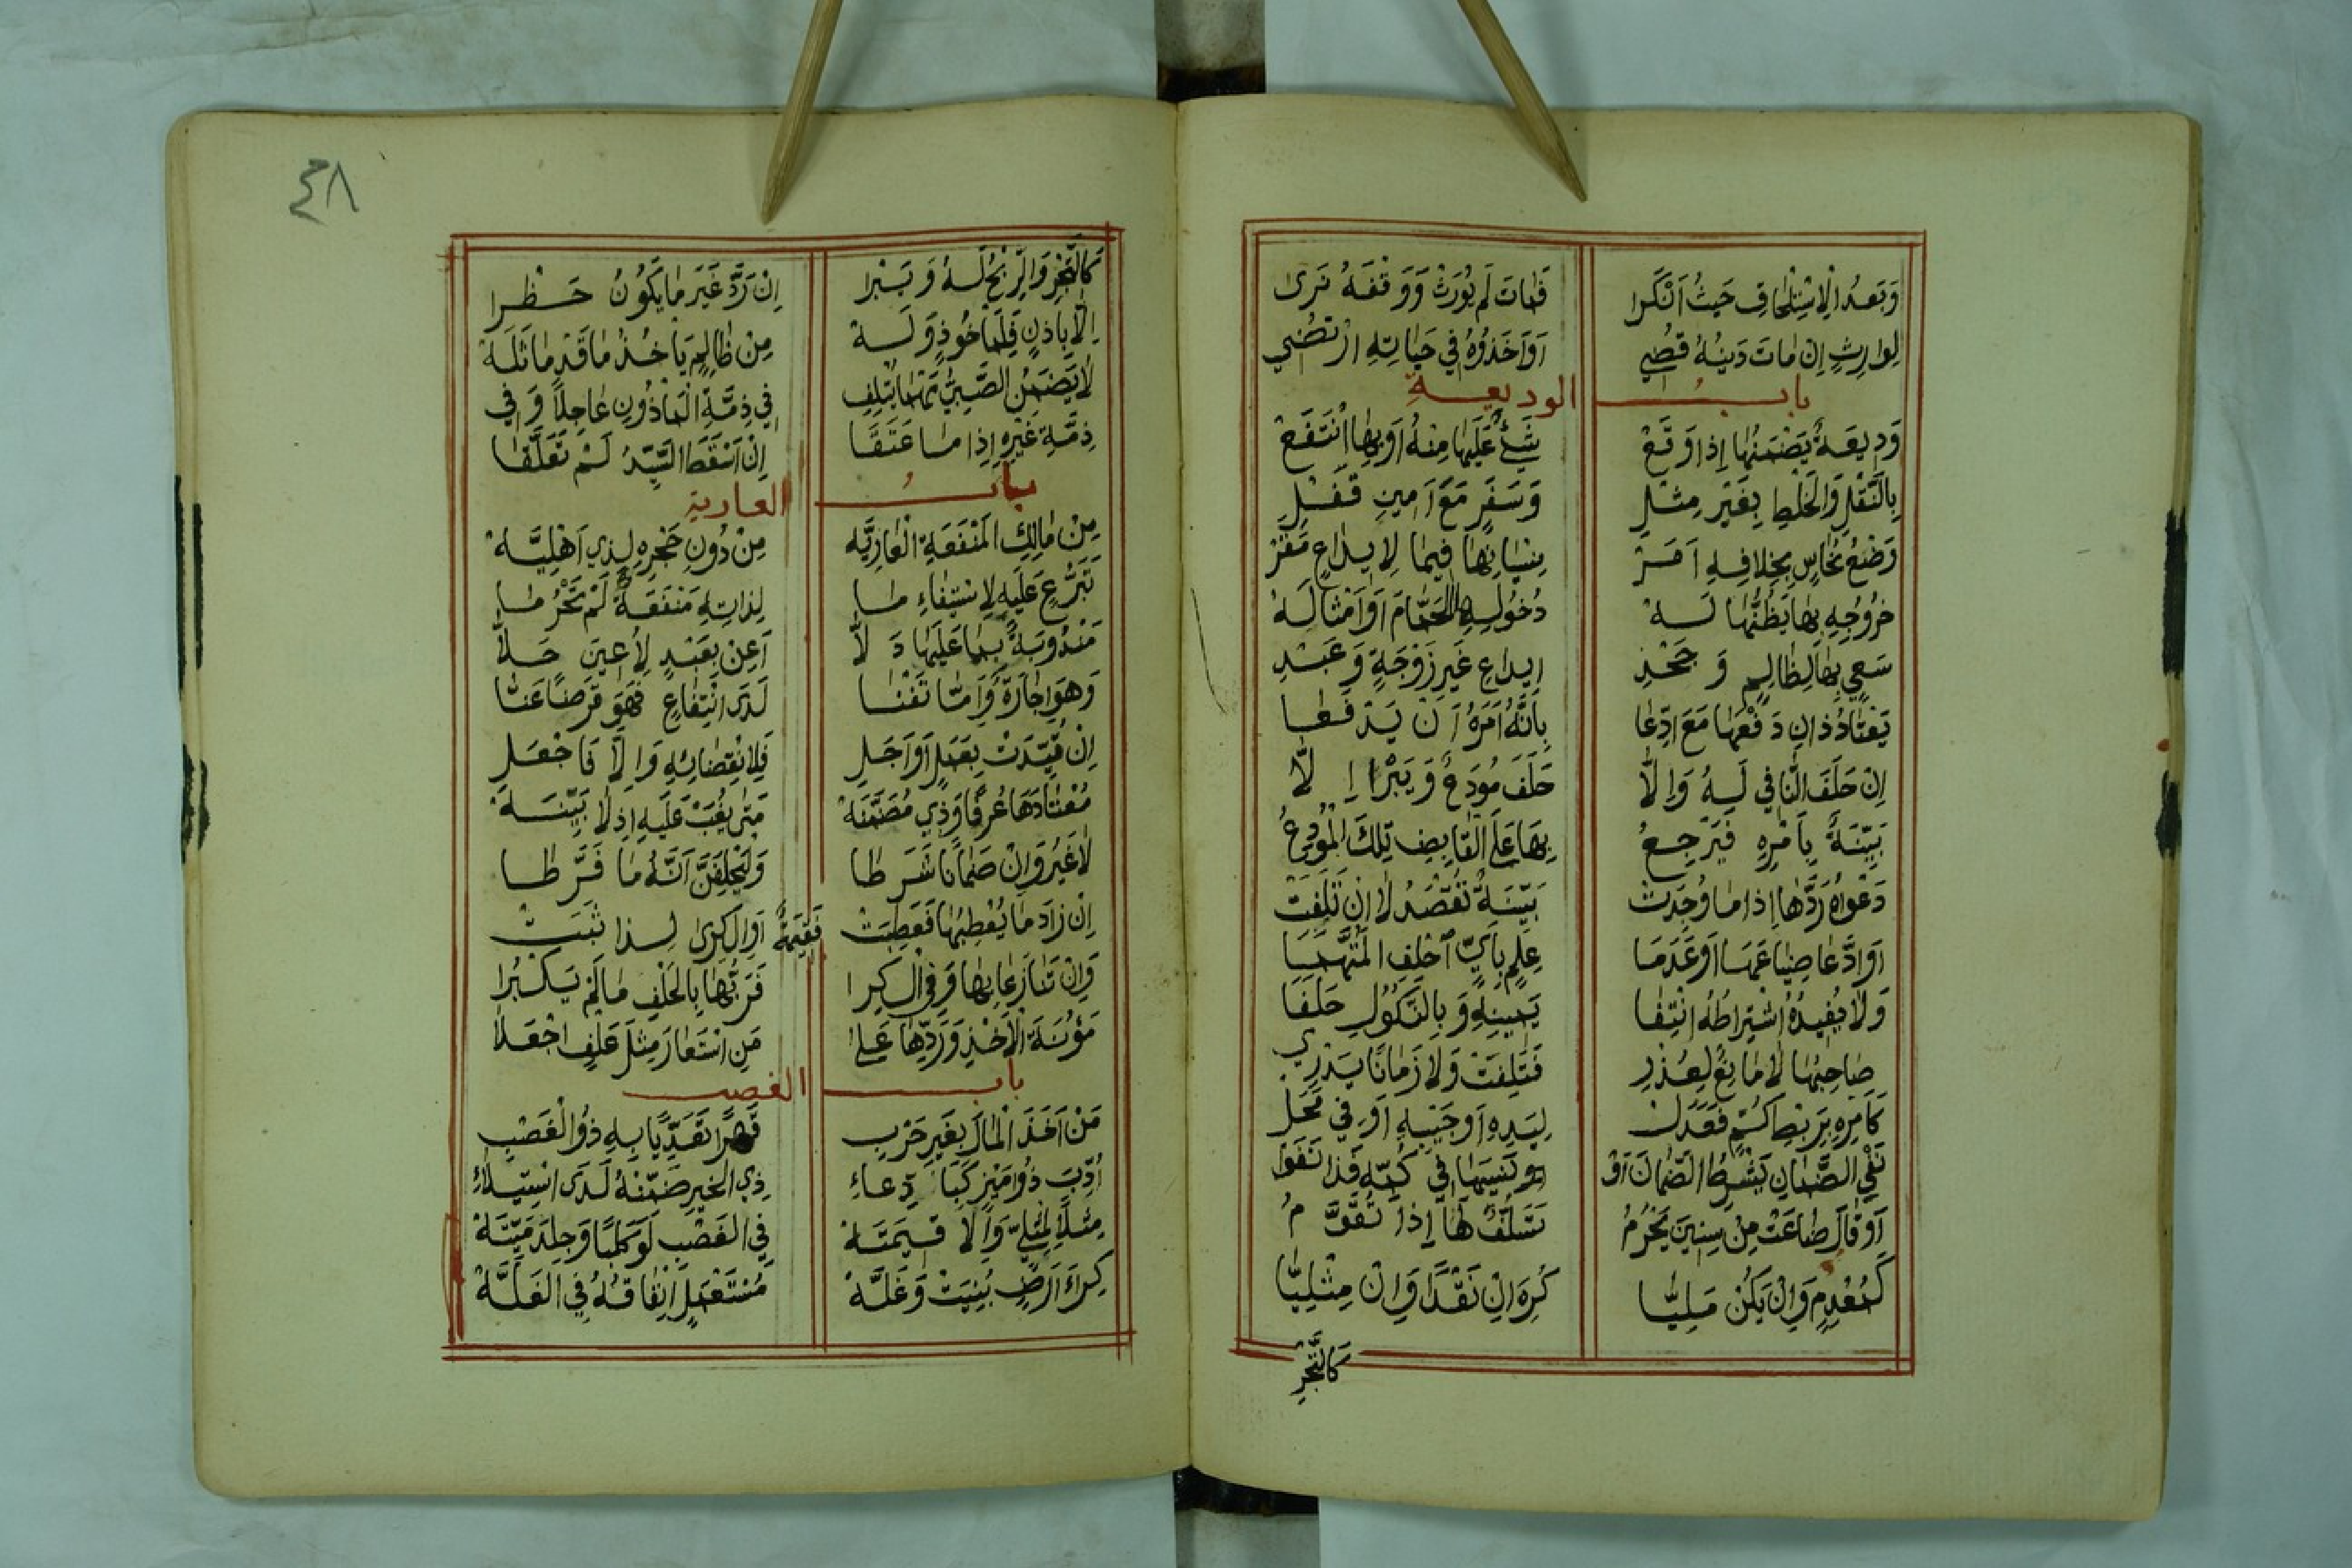 وَبَعدُ الِاسْتِلْحَاقِ حَيثُ اَنْكَرا فَمَاتَ لَم يُورَثْ وَوَقفَهُ تَرَى
لِوَارِثٍ اِن مَاتَ دَينُهُ قُضِي اَوْ اَخَذُوهُ فِي حَيَاتِهِ ارْتُضِي
باب الوديعة
وَدِيعَةٌ يَضْمَنُهَا إِذَا وَقَعْ شَيْءٌ عَلَيهَا مِنْهُ اَو بِهَا انْتَفَعْ
بِالنَّقْلِ وَالخَلْطِ بِغَيْرِ مِثْلِ وَسَفَرٍ مَعَ اَمِينٍ قَفْلِ
وَضْعُ نُحَاسٍ بِخِلَافِهِ اَمَرْ نِسْيَانُهَا فِيمَا لِإِيدَاعٍ مَقَرْ
خُرُوجِهِ بِهَا يَظُنُّهَا لَهْ دُخُولِهِ بِهَا الحَمَّامَ اَوْ اَمْثَالَهْ
سَعيٍ بِهَا لِظَالِمٍ وَجَحْدِ اِيدَاعِ غَيرِ زَوْجَةٍ وَعَبْدِ
يَعْتَادُ ذَانِ دَفْعَهَا مَعَ ادِّعَا بِاَنَّهُ اَمَرَهُ اَنْ يَدْفَعَا
اِنْ حَلَفَ النَّافِي لَهُ وَاِلَّا حَلَفَ مُودَعٌ وَيَبْرَا اِلَّا
بَيِّنَةً بِاَمْرِهِ فَيَرْجِعُ بِهَا عَلَى القَابِضِ تِلكَ المُودَعُ
دَعْوَاهُ رَدَّهَا اِذَا مَا وُجِدَتْ بَيِّنَةٌ تُقْصَدُ لَا اِنْ تَلِفَتْ
اَوِ ادَّعَا ضِيَاعَهَا اَوْ عَدَمَا عِلْمٍ بِاَيٍّ احْلِفِ المُتَّهَمَا
وَلَا يُفِيدُهُ اشْتِرَاطُهُ انْتِفَا يَمِينِهِ وَبِالنُّكُولِ حَلَفَا
صَاحِبُهَا لَا مَانِعٌ لِعُذْرِ فَتَلِفَتْ وَلَا زَمَانًا يَدْرِي
كَاَمْرِهِ بِرَبْطِ كُمٍّ فَعَدَلْ لِيَدِهِ اَوْ جَيْبِهِ اَوْ فِي مَحَلْ
نَفْيِ الضَّمَانِ بَشَرْطِ الضَّمَانَ اَوْ نَسِيَهَا فِي كُمِّهِ فَذَا نَفَوْا
اَوْ قَالَ ضَاعَتْ مِنْ سِنِينَ يَحْرُمُ تَسَلُّفٌ لَهَا اِذَا تُقَوَّمُ
كَمُعْدِمٍ وَاِنْ يَكُنْ مَلِيَّا كُرِهَ اِنْ نَقْدًا وَاِنْ مِثْلِيَّا
كَالتَّجْرِ
٤٨
كَالتَّجْرِ وَالرِّبْحُ لَهُ وَيَبْرَا اِنْ رَدَّ غَيرَ مَا يَكُونُ حَظْرا
اِلَّا بِاِذْنٍ فَلِمَاخُوذٍ وَلَهْ مِنْ ظَالِمٍ يَاخُذُ مَا قَدْ مَاثَلَهْ
لَا يَضْمَنُ الصَّبِيُّ مَهْمَا يُتْلِفِ فِي ذِمَّةِ المَاذُونِ عَاجِلًا وَفِي
ذِمَّةِ غَيْرِهِ اِذَا مَا عَتَقَا اِنْ اَسْقَطَ السَّيِّدُ لَمْ تَعَلَّقَا
باب العارية
مِنْ مَالِكِ المَنْفَعَةِ العَارِيَّه مِنْ دُونِ حَجْرِهِ لِذِي اَهْلِيَّهْ
تَبَرُّعٍ عَلَيهِ لِاسْتِيفَاءِ مَا لِذَاتِهِ مَنْفَعَةً لَمْ تَحْرُمَا
مَنْدُوبَةٌ بِمَا عَلَيهَا دَلَّا اَعِنْ بِعَبْدٍ لِاُعِينَ حَلَّا
وَهْوَ اِجَارَةٌ وَاَمَّا تَفْنَا لَدَى انْتِفَاعٍ فَهْوَ قَرْضًا عَنَّا
اِنْ قُيِّدَتْ بِعَمَلٍ اَوْ اَجَلِ فَلِانْقِضَائِهِ وَاِلَّا فَاجْعَلِ
مُعْتَادَهَا عُرْفًا وَذِي مُضَمَّنَهْ مَتَى يُغَبْ عَلَيهِ اِذْ لَا بَيِّنَهْ
لَا غَيْرُ وَاِنْ ضَمَانًا شَرَطَا وَلْيَحْلِفَنَّ اَنَّهُ مَا فَرَّطَا
اِنْ زَادَ مَا يُعْطِبُهَا فَعَطِبَتْ فَقِيمَةٌ اَوِ الكِرَى لِذَا ثَبَتْ
وَاِنْ تَنَازَعَا بِهَا وَفِي الكِرَا فَرَبُّهَا بِالحَلْفِ مَا لَمْ يَكْبُرَا
مَؤُنَةَ الاَخْذِ وَرَدِّهَا عَلَى مَنِ اسْتَعَارَ مِثْلَ عَلْفٍ اجْعَلَا
باب الغصب
مَنْ اَخَذَ المَالَ بِغَيرِ حَرْبِ قَهْرًا تَعَدِّيًا بِهِ ذُو الغَصْبِ
اُدِّبَ ذُو مَيْزٍ كَبَادِّعَاءِ ذِي الخَيرِ ضَمِّنْهُ لَدَى اسْتِيلَاءِ
مِثْلًا لِمِثْلِيٍّ وَاِلَّا قِيمَتَهْ فِي الغَصْبِ لَوْ كَلبًا وَجِلدَ مَيْتَهْ
كِرَاءَ اَرْضٍ بُنِيَتْ وَغَلَّهْ مُسْتَعْمَلٍ اِنْفَاقُهُ فِي الغَلَّهْ